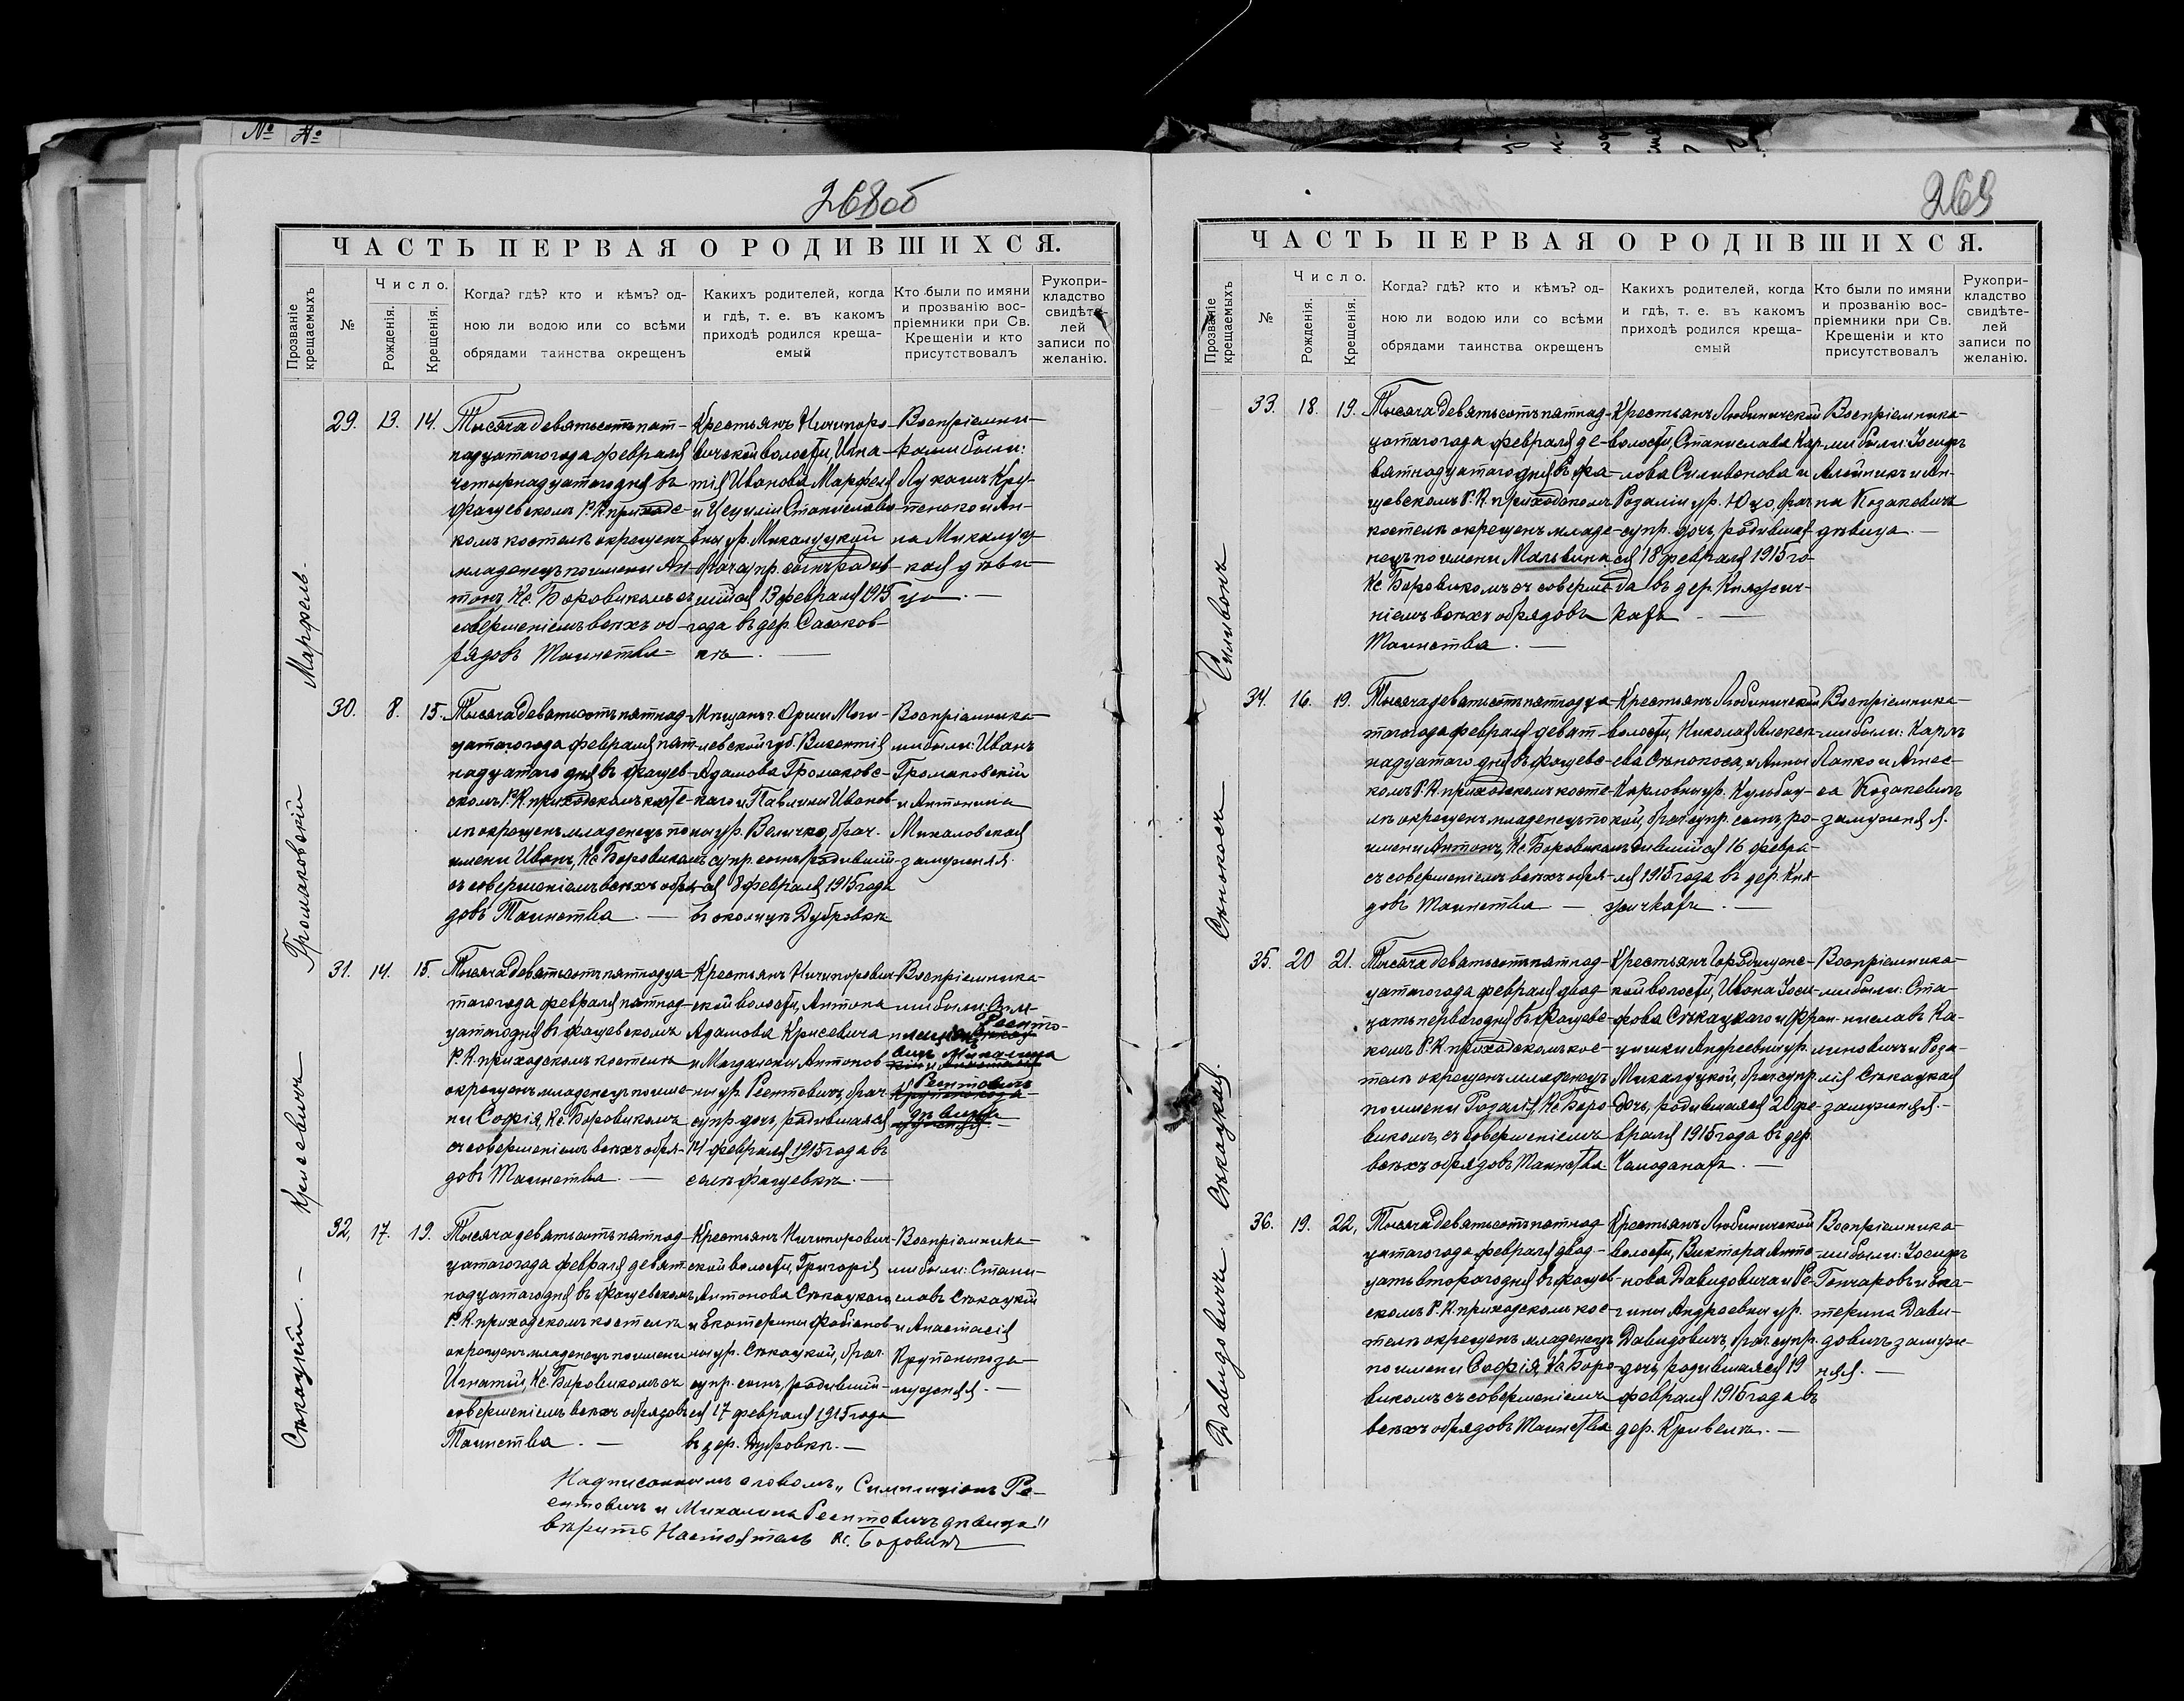 268об
ЧАСТЬ ПЕРВАЯ О РОДИВШИХСЯ.
Прозваніе крещаемыхъ
№
Число.
Рожденія.
Крещенія.
Когда? гдѣ? кто и кѣмъ? од-
ною ли водою или со всѣми
обрядами таинства окрещенъ
Какихъ родителей, когда
и гдѣ, т. е. въ какомъ
приходѣ родился креща-
емый
Кто были по имяни
и прозванію вос-
пріемники при Св.
Крещеніи и кто
присутствовалъ
Рукопри-
кладство
свидѣте-
лей
записи по
желанію.
Марфель.
29. 13. 14.
Тысяча девятьсотъ пят-
надцатаго года февраля
четырнадцатаго дня въ
Фащевскомъ Р.К. приходс-
комъ костелѣ окрещенъ
младенецъ по имени Ан-
тонъ Кс. Боровикомъ съ
совершеніемъ всѣхъ об-
рядовъ Таинства
Крестьянъ Ничипоро-
вичской волости, Игна-
тія Иванова Марфеля
и Цециліи Станиславо-
вны ур. Микалуцкой
брач. супр. сынъ родив-
шійся 13 февраля 1915
года въ дер. Сасков-
кѣ.
Воспріемни-
ками были:
Лукашъ Кру-
пенько и Ан-
на Микалуц-
кая дѣви-
ца.
Громаковскій
30. 8. 15.
Тысяча девятьсотъ пятнад-
цатаго года февраля пят-
надцатаго дня въ Фащев-
скомъ Р.К. приходскомъ косте-
лѣ окрещенъ младенецъ по
имени Иванъ, Кс. Боровикомъ
съ совершеніемъ всѣхъ обря-
довъ Таинства.
Мѣщанъ г. Орши Моги-
левской губ. Викентія
Адамова Громаковс-
каго и Павлины Иванов-
ны ур. Величко, брач.
супр. сынъ родивший-
ся 8 февраля 1915 года
въ околицѣ Дубровкѣ
Воспріемника-
ми были: Иванъ
Громаковскій
и Антонина
Микаловская
замужняя.
Крисевичъ
31. 14. 15.
Тысяча девятьсотъ пятнадца-
таго года февраля пятнад-
цатаго дня въ Фащевскомъ
Р.К. приходскомъ костелѣ
окрещенъ младенецъ по име-
ни Софія, Кс. Боровикомъ
съ совершеніемъ всѣхъ обря-
довъ Таинства.
Крестьянъ Ничипорович-
ской волости, Антона
Адамова Крисевича
и Магдалены Антонов-
ны ур. Реентовичъ, брач.
супр. дочь, родившаяся
14 февраля 1915 года въ
селѣ Фащевкѣ.
Воспріемника-
ми были: Сим-
Реенто-
вичъ Михалина
Реентовичъ
дѣвица
Сѣкацкій.
32. 17. 19.
Тысяча девятьсотъ пятнад-
цатаго года февраля девят-
надцатаго дня въ Фащевскомъ
Р.К. приходскомъ костелѣ
окрещенъ младенецъ по имени
Игнатій, Кс. Боровикомъ съ
совершеніемъ всѣхъ обрядовъ
Таинства.
Крестьянъ Ничипорович-
ской волости, Григорія
Антонова Сѣкацкаго
и Екатерины Фабіянов-
ны ур. Сѣкацкой, брач.
супр. сынъ, родивший-
ся 17 февраля 1915 года
въ дер. Дубровкѣ.
Воспріемника-
ми были: Стани-
славъ Сѣкацкій
и Анастасія
Крупенько за-
мужняя.
Надписанномъ словомъ „Симплиціанъ Ре-
ентовичъ и Михалина Реентовичъ дѣвица"
вѣрить Настоятель Кс. Боровикъ
269
ЧАСТЬ ПЕРВАЯ О РОДИВШИХСЯ.
Прозваніе крещаемыхъ
№
Число.
Рожденія.
Крещенія.
Когда? гдѣ? кто и кѣмъ? од-
ною ли водою или со всѣми
обрядами таинства окрещенъ
Какихъ родителей, когда
и гдѣ, т. е. въ какомъ
приходѣ родился креща-
емый
Кто были по имяни
и прозванію вос-
пріемники при Св.
Крещеніи и кто
присутствовалъ
Рукопри-
кладство
свидѣте-
лей
записи по
желанію.
Силивонъ
33. 18. 19.
Тысяча девятьсотъ пятнад-
цатаго года февраля де-
вятнадцатаго дня въ Фа-
щевскомъ Р.К. приходскомъ
костелѣ окрещенъ младе-
нецъ по имени Мальвина
Кс. Боровикомъ съ соверше-
ніемъ всѣхъ обрядовъ
Таинства.
Крестьянъ Любиничской
волости, Станислава Кар-
лова Силивонова и
Розаліи ур. Юцо, брач.
супр. дочь, родившая-
ся 18 февраля 1915 го-
да въ дер. Княжич-
кахъ
Воспріемника-
ми были: Іосифъ
Алейникъ и Ан-
на Козакевичъ
дѣвица.
Сѣнокосъ
34. 16. 19.
Тысяча девятьсотъ пятнадца-
таго года февраля девят-
надцатаго дня въ Фащевс-
комъ Р.К. приходскомъ косте-
лѣ окрещенъ младенецъ по
имени Антонъ, Кс. Боровикомъ
съ совершеніемъ всѣхъ обря-
довъ Таинства
Крестьянъ Любиничской
волости, Николая Алексе-
ева Сѣнокоса, и Анны
Карловны ур. Кульбац-
кой, брач. супр. сынъ, ро-
дившийся 16 февра-
ля 1915 года въ дер. Кня-
жичкахъ.
Воспріемника-
ми были: Карлъ
Лапко и Агнес-
са Козакевичъ
замужняя.
Сѣкацкая.
35. 20 21.
Тысяча девятьсотъ пятнад-
цатаго года февраля двад-
цать перваго дня въ Фащевс-
комъ Р.К. приходскомъ кос-
телѣ окрещенъ младенецъ
по имени Розалія, Кс. Боро-
викомъ, съ совершеніемъ
всѣхъ обрядовъ Таинства.
Крестьянъ Городищенс-
кой волости, Ивана Іоси-
фова Сѣкацкаго и Фран-
цишки Андреевны ур.
Микалуцкой, брач. супр.
дочь, родившаяся 20 фе-
враля 1915 года въ дер.
Чемоданахъ.
Воспріемника-
ми были: Ста-
ниславъ Ка-
линовичъ и Роза-
лія Сѣкацкая
замужняя.
Давидовичъ
36. 19. 22.
Тысяча девятьсотъ пятнад-
цатаго года февраля двад-
цать втораго дня въ Фащев-
скомъ Р.К. приходскомъ кос-
телѣ окрещенъ младенецъ
по имени Софія, Кс. Боро-
викомъ съ совершеніемъ
всѣхъ обрядовъ Таинства
Крестьянъ Любиничской
волости, Виктора Анто-
нова Давидовича и Ре-
гины Андреевны ур.
Давидовичъ, брач. супр.
дочь, родившаяся 19
февраля 1915 года въ
дер. Кривелѣ.
Воспріемника-
ми были: Іосифъ
Гончаровъ и Ека-
терина Дави-
довичъ замуж-
няя.